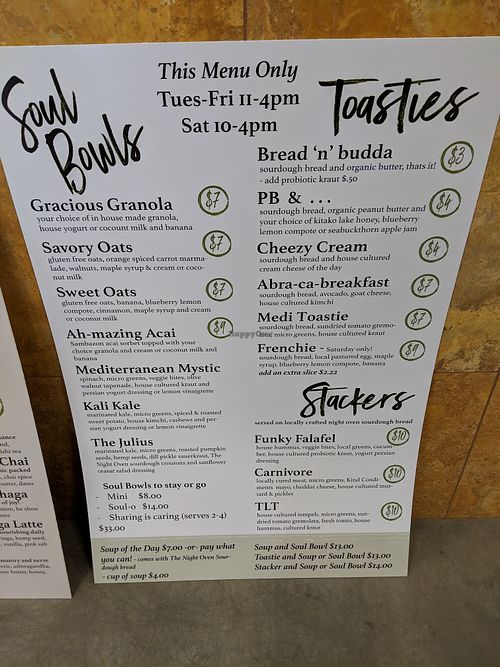 This Menu Only
Tues-Fri 11-4pm
Sat 10-4pm
Soul
Bowls
Gracious Granola $7
your choice of in house made granola,
house yogurt or cocount milk and banana
Savory Oats $7
gluten free oats, orange spiced carrot marma-
lade, walnuts, maple syrup & cream or coco-
nut milk
Sweet Oats $7
gluten free oats, banana, blueberry lemon
compote, cinnamon, maple syrup and cream
or coconut milk
Ah-mazing Acai $9
Sambazon acai sorbet topped with your
choice granola and cream or coconut milk and
banana
Mediterranean Mystic
spinach, micro greens, veggie bites, olive
walnut tapenade, house cultured kraut and
persian yogurt dressing or lemon vinaigrette
Kali Kale
marinated kale, micro greens, spiced & roasted
sweet potato, house kimchi, cashews and per-
sian yogurt dressing or lemon vinaigrette
The Julius
marinated kale, micro greens, roasted pumpkin
seeds, hemp seeds, dill pickle sauerkraut, The
Night Oven sourdough croutons and sunflower
ceasar salad dressing
Soul Bowls to stay or go
- Mini $8.00
- Soul-o $14.00
- Sharing is caring (serves 2-4)
$33.00
Toasties
Bread 'n' budda $3
sourdough bread and organic butter, thats it!
- add probiotic kraut $.50
PB & ... $4
sourdough bread, organic peanut butter and
your choice of kitako lake honey, blueberry
lemon compote or seabuckthorn apple jam
Cheezy Cream $4
sourdough bread and house cultured
cream cheese of the day
Abra-ca-breakfast $7
sourdough bread, avocado, goat cheese,
house cultured kimchi
Medi Toastie $7
sourdough bread, sundried tomato gremo-
lata, micro greens, house kraut
Frenchie - Saturday only! $9
sourdough bread, local pastured egg, maple
syrup, blueberry lemon compote, banana
add an extra slice $2.22
Stackers
served on locally crafted night oven sourdough bread
Funky Falafel $10
house hummus, veggie bites, local greens, cucum-
ber, house cultured probiotic kraut, yogurt persian
dressing
Carnivore $10
locally cured meat, micro greens, Kind Condi
ments mayo, cheddar cheese, house cultured mus-
tard & pickles
TLT $10
house cultured tempeh, micro greens, sun-
dried tomato gremolata, fresh tomto, house
hummus, cultured kraut
Soup of the Day $7.00 -or- pay what
you can! - comes with The Night Oven Sour-
dough bread
- cup of soup $4.00
Soup and Soul Bowl $13.00
Toastie and Soup or Soul Bowl $13.00
Stacker and Soup or Soul Bowl $14.00
Chai
Latte